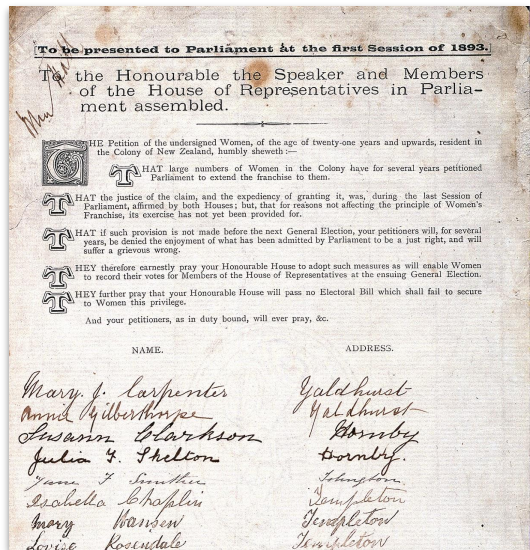 To be presented to Parliament at the first Session of 1893.
To the Honourable the Speaker and Members
of the House of Representatives in Parlia-
ment assembled.
THE Petition of the undersigned Women, of the age of twenty-one years and upwards, resident in
the Colony of New Zealand, humbly sheweth :—
THAT large numbers of Women in the Colony have for several years petitioned
Parliament to extend the franchise to them.
THAT the justice of the claim, and the expediency of granting it, was, during the last Session of
Parliament, affirmed by both Houses; but, that for reasons not affecting the principle of Women's
Franchise, its exercise has not yet been provided for.
THAT if such provision is not made before the next General Election, your petitioners will, for several
years, be denied the enjoyment of what has been admitted by Parliament to be a just right, and will
suffer a grievous wrong.
THEY therefore earnestly pray your Honourable House to adopt such measures as will enable Women
to record their votes for Members of the House of Representatives at the ensuing General Election.
THEY further pray that your Honourable House will pass no Electoral Bill which shall fail to secure
to Women this privilege.
And your petitioners, as in duty bound, will ever pray, &c.
NAME. ADDRESS.
Mary J. Carpenter Yaldhurst
Annie Gilberthorpe Yaldhurst
Susann Clarkson Hornby
Julia F. Shelton Hornby.
F
Isabella Chaplin Templeton
Mary Hansen Templeton
Louise Rosendale Templeton